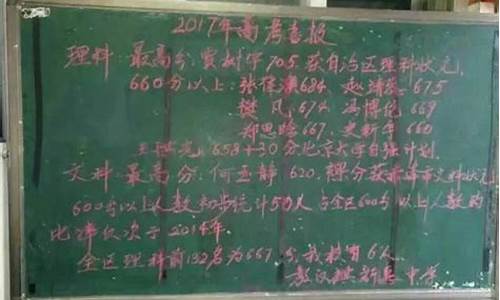 2017年高考喜报
理科:最高分:贾树华 705,获自治区理科状元,
660分以上:张 684, 赵 675
樊 674, 冯博 669
郑思 667, 史新 660
王 658+30分北京大学自强计划.
文科 最高分:何玉静 620, 裸分获 文科状元
600分以上人数初步统计50人占全区600分以上人数的
比率仅次于2014年.
全区理科前132名为667分,我校有6人
中学